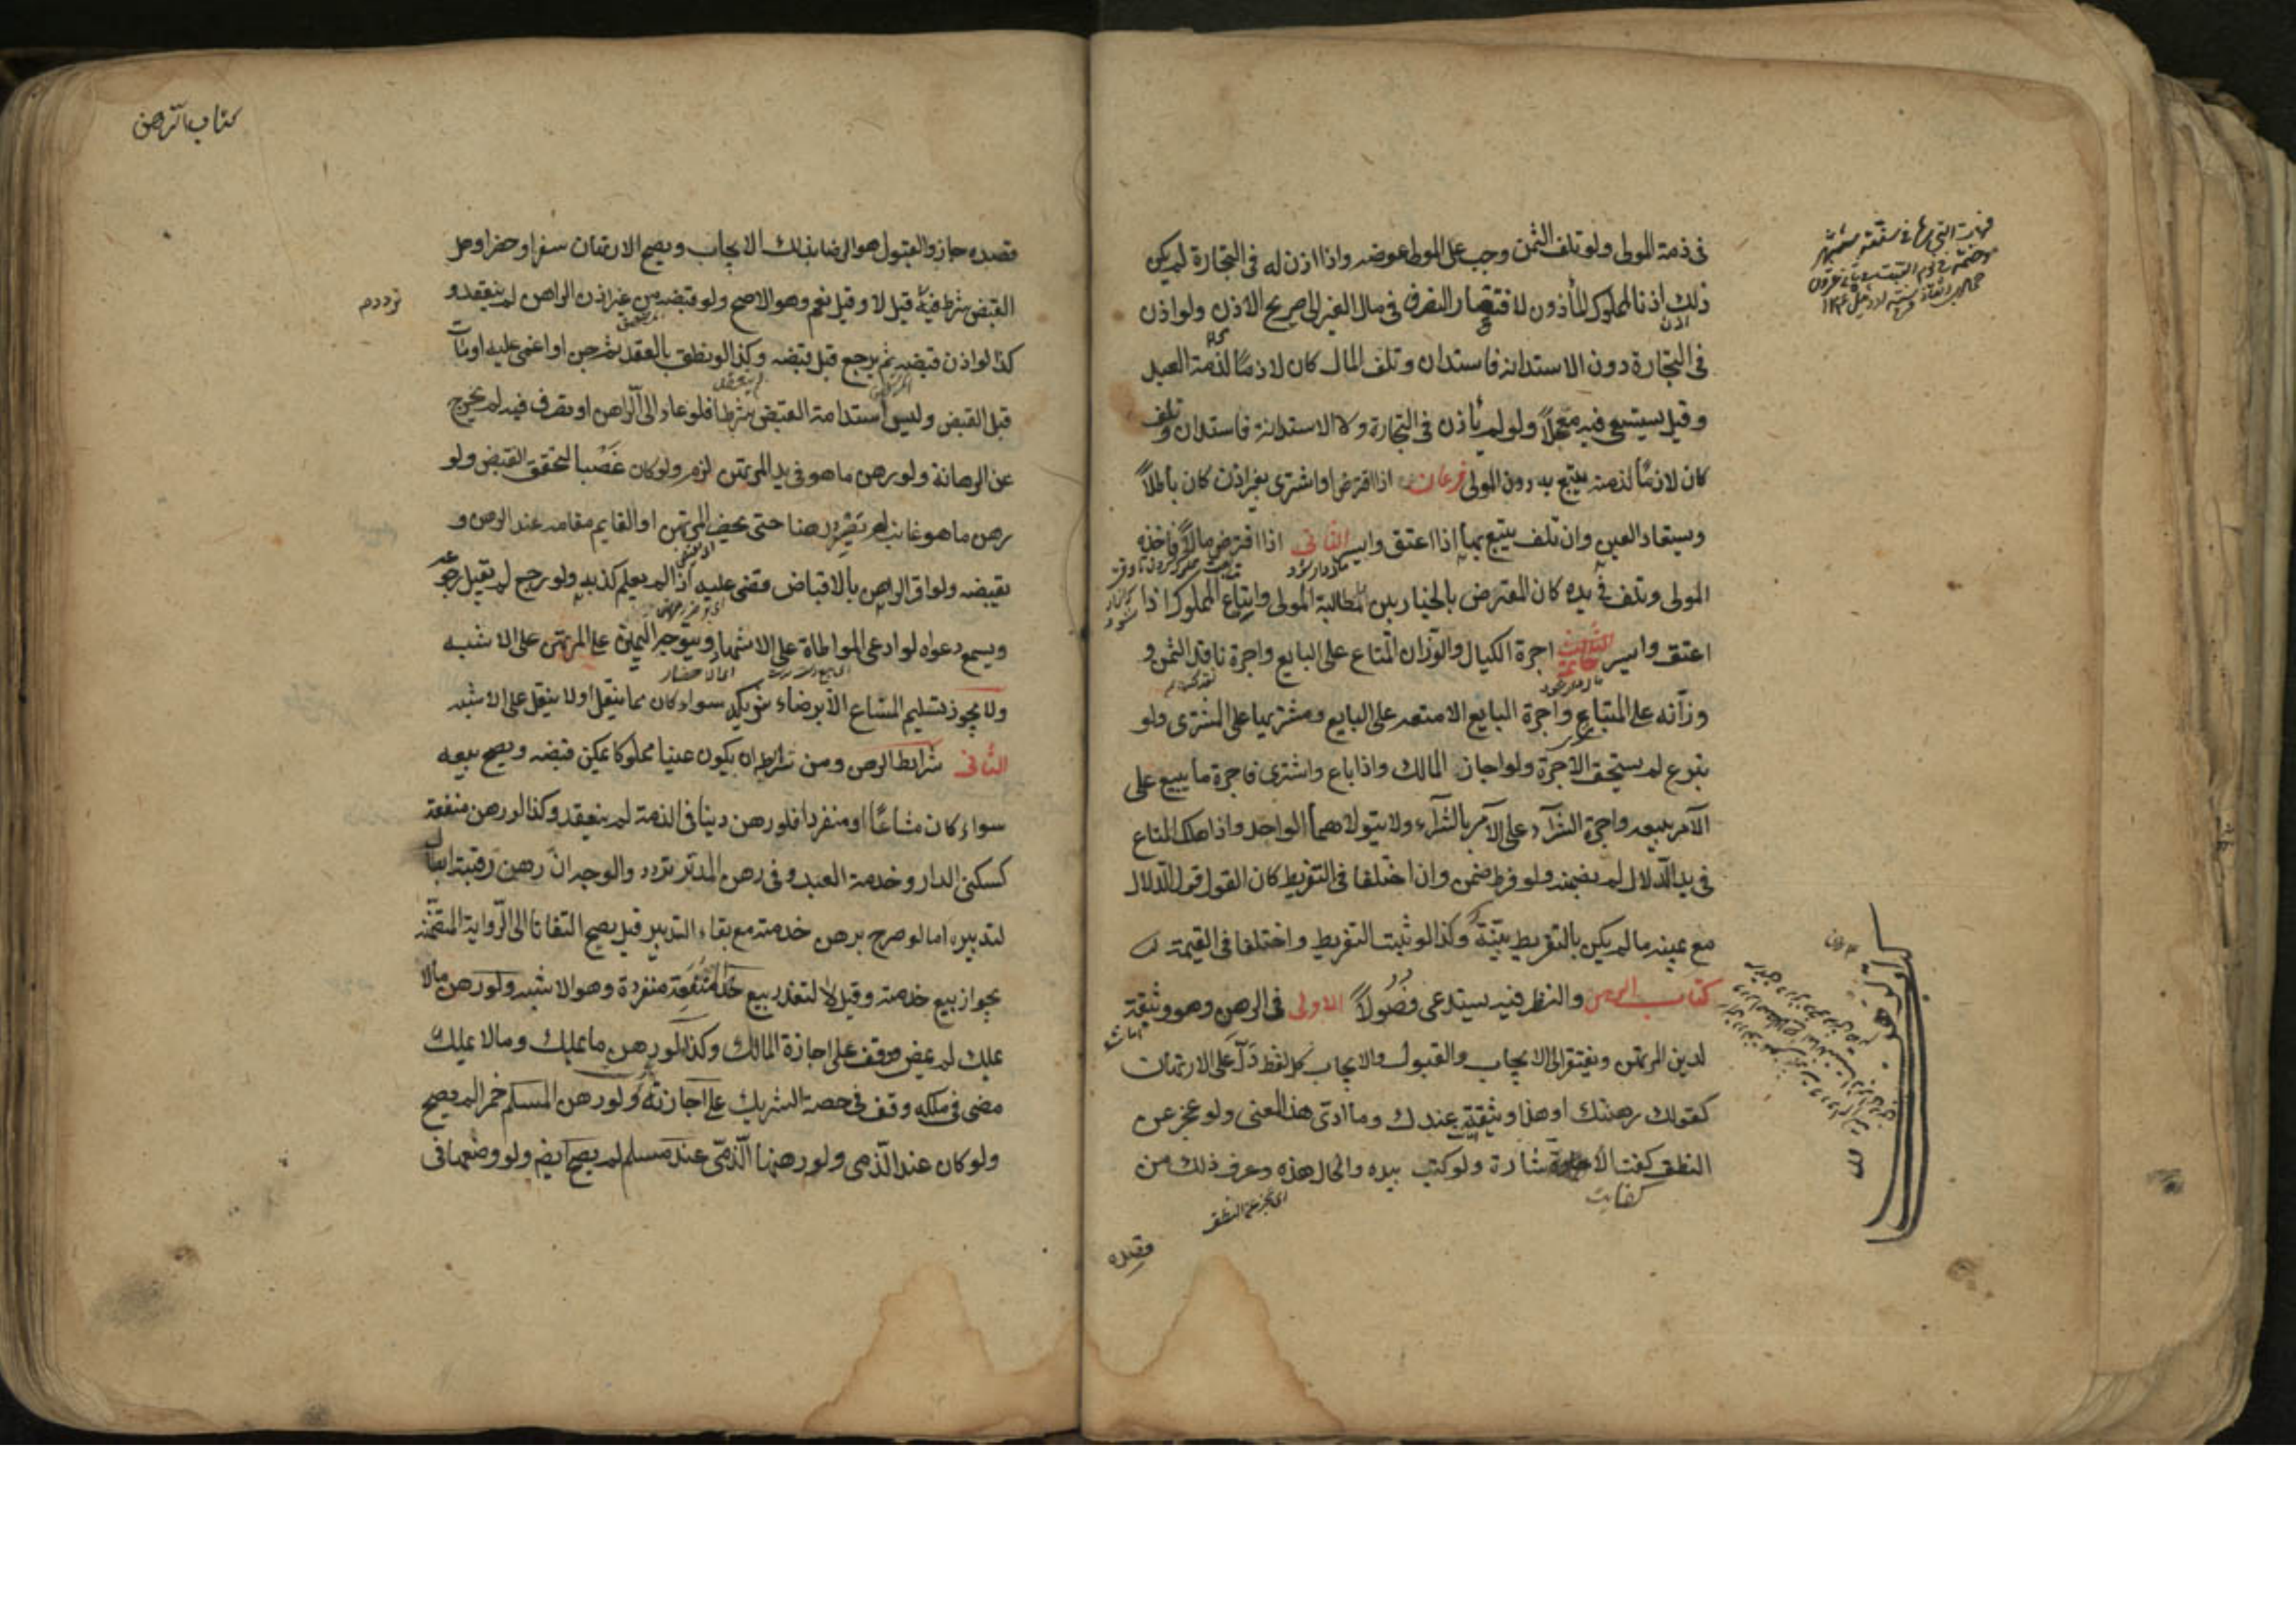 فى ذمة المولى ولو تلف الثمن وجب على المولى عوضه واذا اذن له فى التجارة لم يكن
ذلك اذنا لمملوك المأذون لافتقار التصرف فى مال الغير الى صريح الاذن ولو اذن
فى التجارة دون الاستدانه فاستدان وتلف المال كان لازما لذمة العبد
وقيل يستسعى فيه معجلاً ولو لم يأذن فى التجارة ولا الاستدانه فاستدان وتلف
كان لازمًا لذمته يتبع به دون المولى فرعان اذا اقترض او اشترى بغير اذن كان باطلاً
ويستعاد العين وان تلف يتبع بها اذا اعتق وايسر الثانى اذا اقترض مالاً فاخذه
المولى وتلف فى يده كان المقرض بالخيار بين مطالبة المولى واتباع المملوك اذا
اعتق وايسر خاتمة اجرة الكيال والوزان المتاع على البايع واجرة ناقد الثمن و
وزّانه على المبتاع واجرة البايع الامتعه على البايع ومشتريها على المشترى ولو
تبرع لم يستحق الاجرة ولو اجاز المالك واذا باع واشترى فاجرة ما يبيع على
الآمر ببيعه واجرة الشراء على الآمر بالشراء ولا يتولاهما الواحد واذا هلك المتاع
فى يد الدلال لم يضمنه ولو فرط ضمن وان اختلفا فى التفريط كان القول قول الدلال
مع يمينه ما لم يكن بالتفريط بيّنة وكذا لو ثبت التفريط واختلفا فى القيمة
كتاب الرهن والنظر فيه يستدعى فصولاً الاول فى الرهن وهو وثيقة
لدين المرتهن ويفتقر الى الايجاب والقبول والايجاب كل لفظ دلّ على الارتهان
كقولك رهنتك او هذا وثيقة عندك وما ادّى هذا المعنى ولو عجز عن
النطق كفت الاشارة ولو كتب بيده والحال هذه وعرف ذلك من
كفايت
اى عجز عن النطق
قصده
كتاب الرهن
قصده جاز والقبول هو الرضا بذلك الايجاب ويصح الارتهان سفرا وحضرا وهل
القبض شرط فيه قيل لا وقيل نعم وهو الاصح ولو قبضه من غير اذن الراهن لم ينعقد و
كذا لو اذن قبضه ثم يرجع قبل قبضه وكذا لو نطق بالعقد ثم جن او اغمى عليه او مات
قبل القبض وليس استدامة القبض شرطا فلو عاد الى الراهن او تصرف فيه لم يخرج
عن الرهانة ولو رهن ما هو فى يد المرتهن لزم ولو كان غصبا لتحقق القبض ولو
رهن ما هو غايب لم يصر رهنا حتى يحضر المرتهن او القايم مقامه عند الرهن و
يقبضه ولو اقر الراهن بالاقباض قضى عليه اذا لم يعلم كذبه ولو رجع لم يقبل رجوعه
ويسمع دعواه لو ادعى المواطاة على الاشهاد ويتوجه اليمين على المرتهن على الاشبه
ولا يجوز تسليم المشاع الا برضاء شريكه سواء كان مما ينقل او لا ينقل على الاشبه
الثانى شرايط الرهن ومن شرايطه ان يكون عينا مملوكا يمكن قبضه ويصح بيعه
سواء كان مشاعًا او منفردا فلو رهن دينا فى الذمة لم ينعقد وكذا لو رهن منفعة
كسكنى الدار وخدمة العبد وفى رهن المدبر تردد والوجه انّ رهن رقبته ابطال
لتدبيره اما لو صرح برهن خدمته مع بقاء التدبير قيل يصح التفاتا الى الرواية المتضمنة
بجواز بيع خدمته وقيل لا لتعذر بيع المنفعة منفردة وهو الاشبه ولو رهن مالا
يملك لم يمض ووقف على اجازة المالك وكذا لو رهن ما يملك وما لا يملك
مضى فى ملكه ووقف فى حصة الشريك على اجازته ولو رهن المسلم خمرا لم يصح
ولو كان عند الذمى ولو رهنها الذمّى عند مسلم لم يصح ايضا ولو وضعها فى